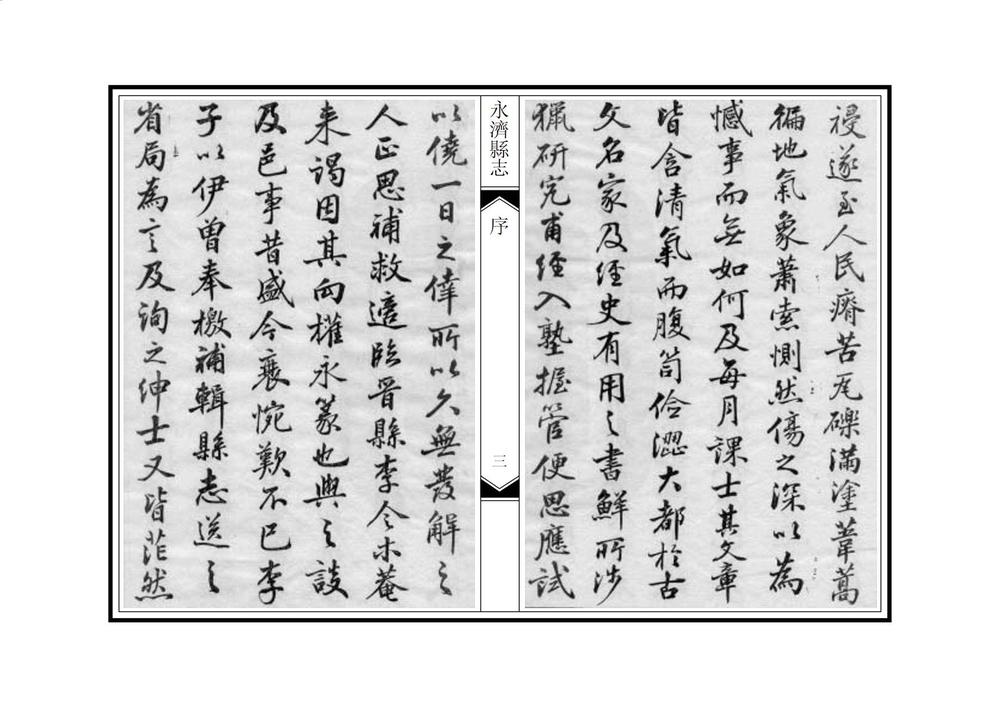 祲遂至人民瘠苦瓦礫滿塗葦蒿
徧地氣象蕭索惻然傷之深以為
憾事而無如何及每月課士其文章
皆含清氣而腹笥儉澀大都於古
文名家及經史有用之書鮮所涉
獵研究甫經入塾握管便思應試
永濟縣志
序
三
以僥一日之倖所以久無發解之
人正思補救適臨晉縣李令
菴
來謁因其向權永篆也與之談
及邑事昔盛今衰惋歎不已李
子以伊曾奉檄補輯縣志送之
省局為言及詢之紳士又皆茫然